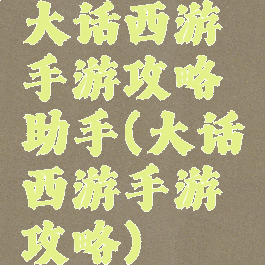 大话西游
手游攻略
助手(大话
西游手游
攻略)